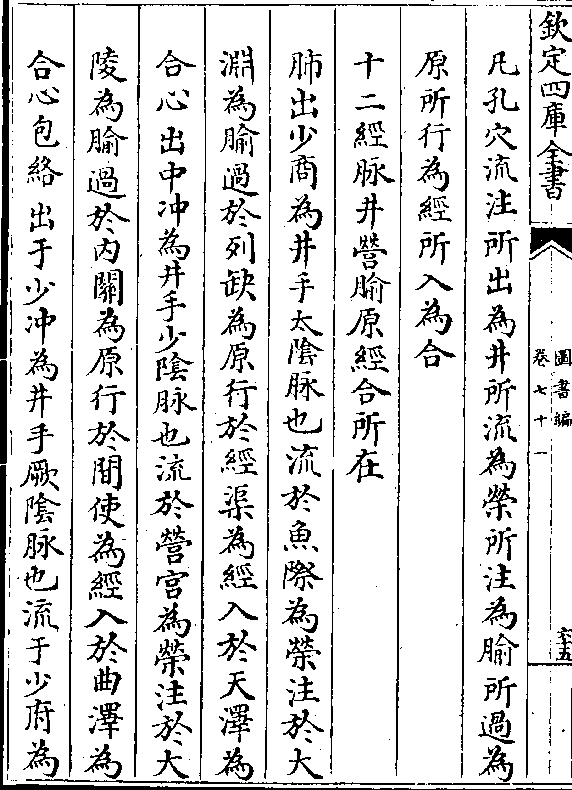 欽定四庫全書
圖書編
卷七十一
六十五
凡孔穴流注所出為井所流為滎所注為腧所過為
原所行為經所入為合
十二經脉井營腧原經合所在
肺出少商為井手太隂脉也流於魚際為滎注於大
淵為腧過於列缺為原行於經渠為經入於天澤為
合心出中冲為井手少隂脉也流於營宫為滎注於大
陵為腧過於内關為原行於間使為經入於曲澤為
合心包絡出于少冲為井手厥隂脉也流于少府為